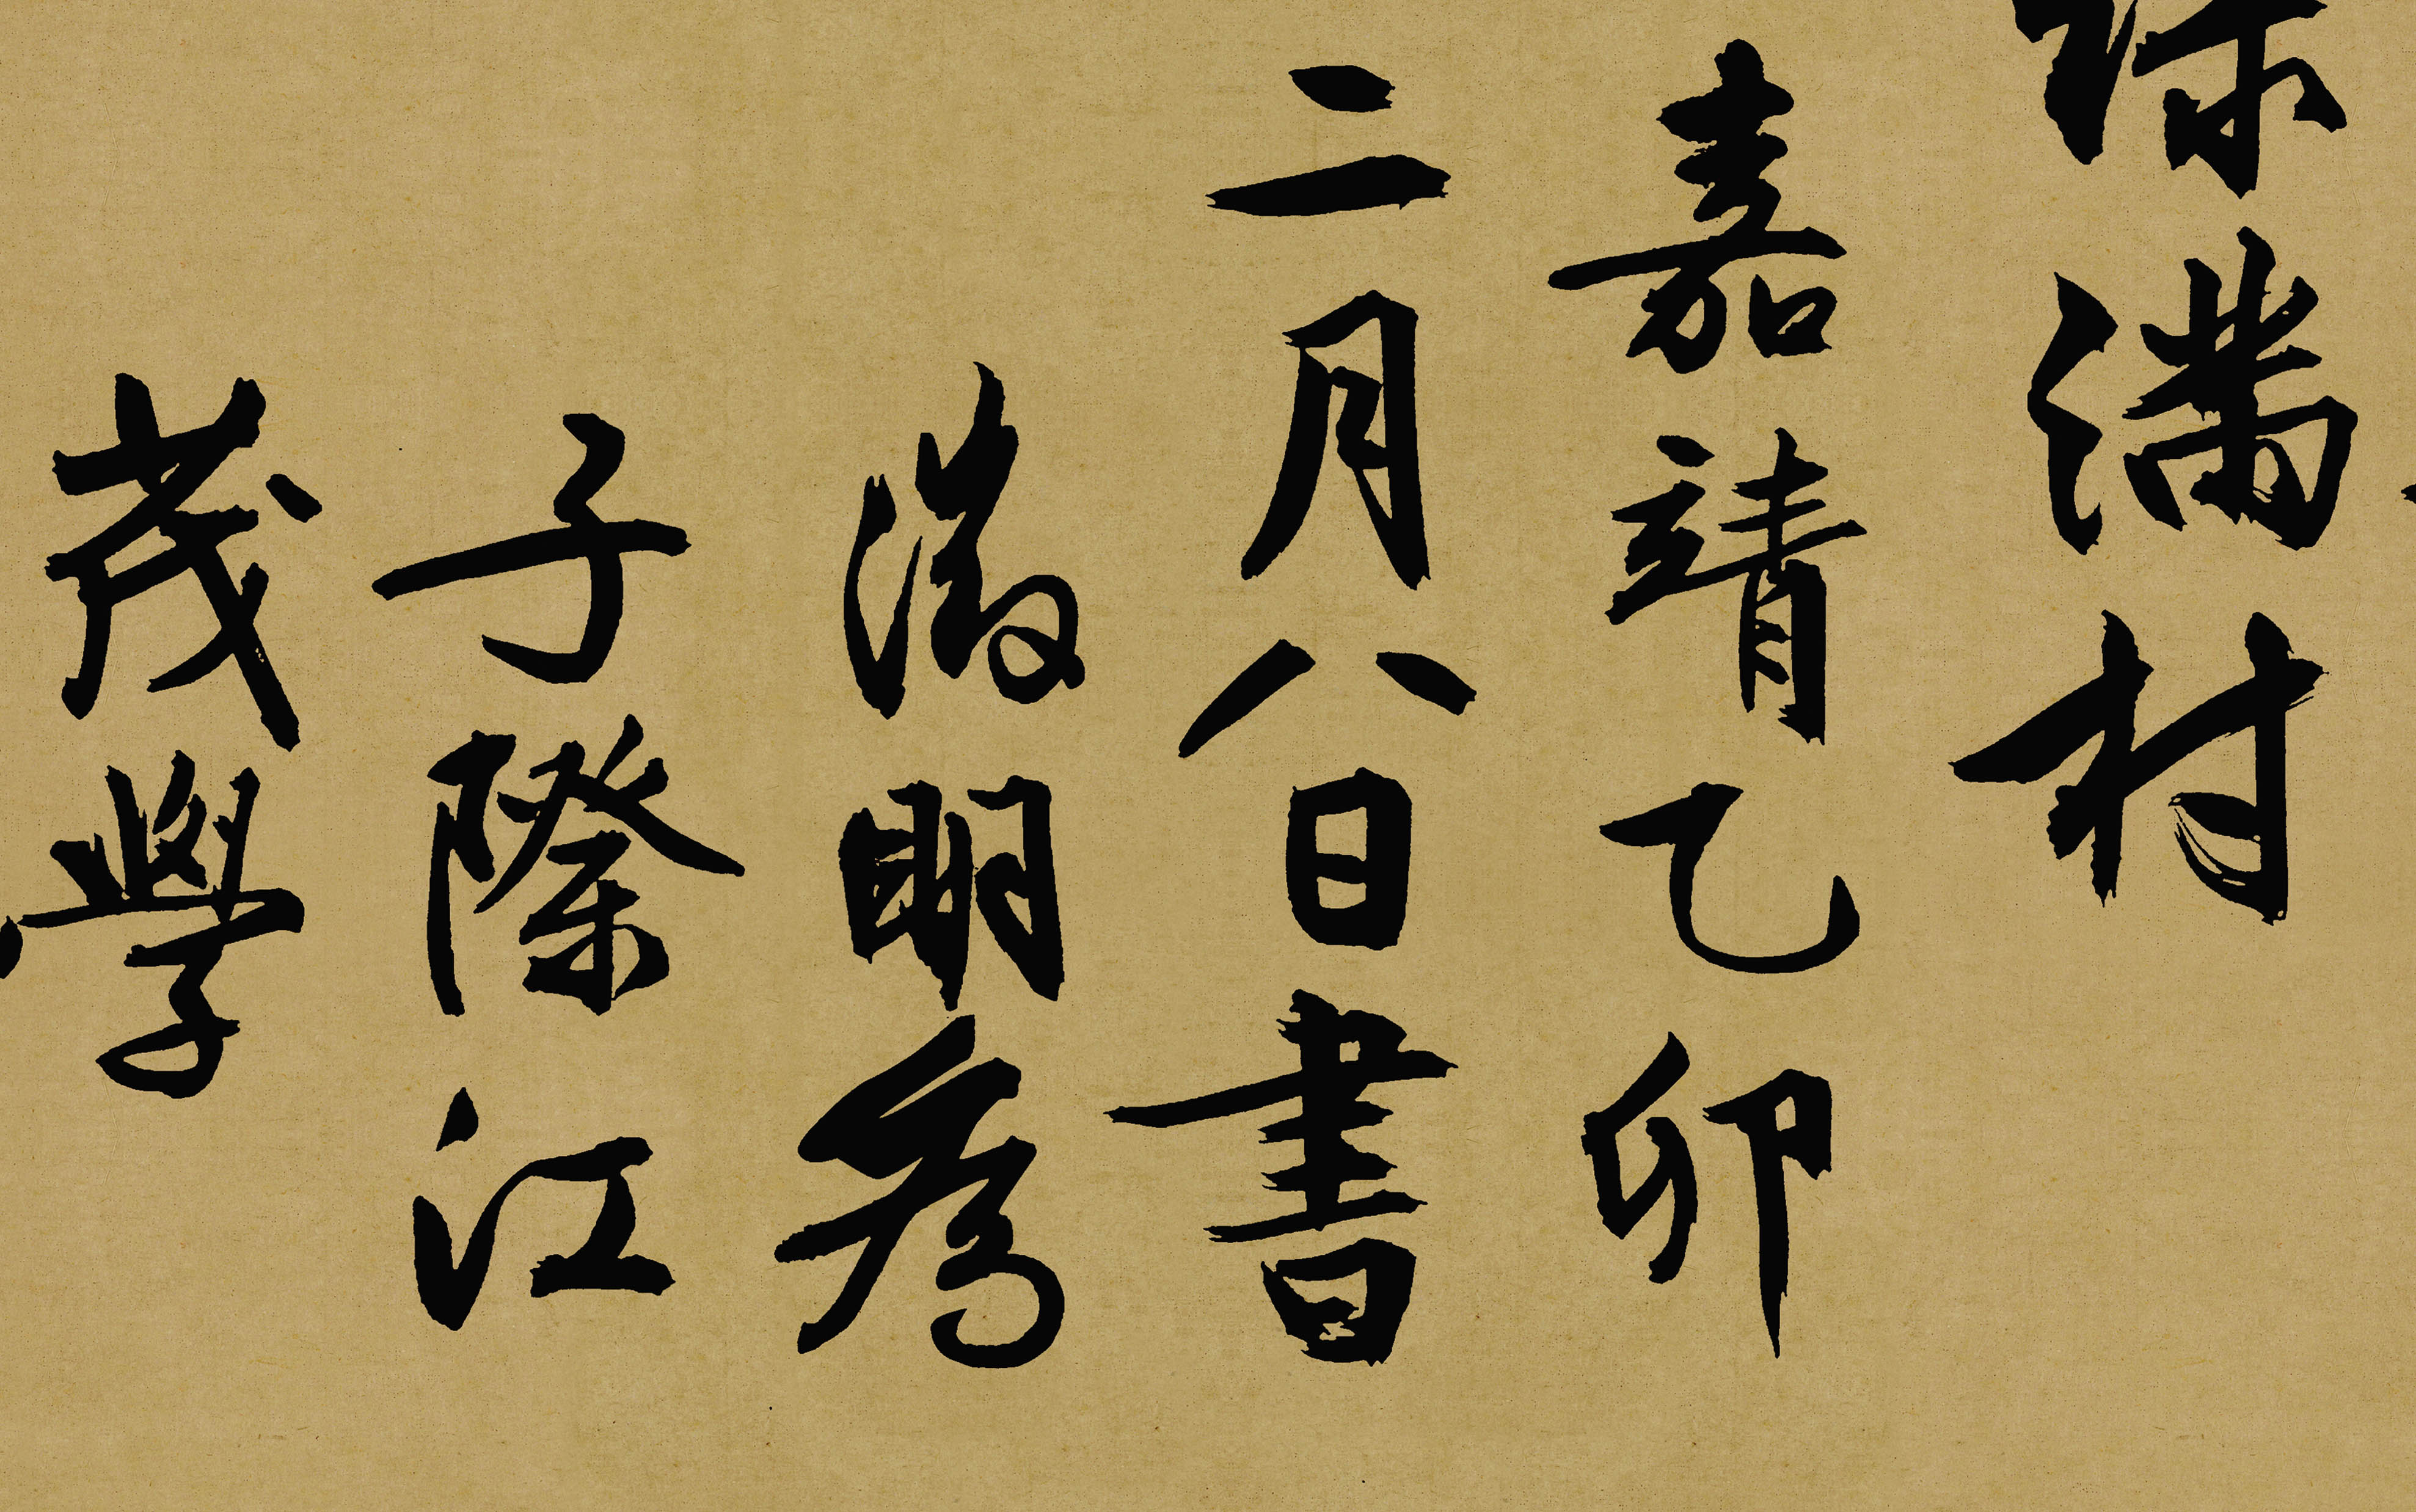 滿村
嘉靖乙卯
二月八日書
徵明為
子際江
茂學